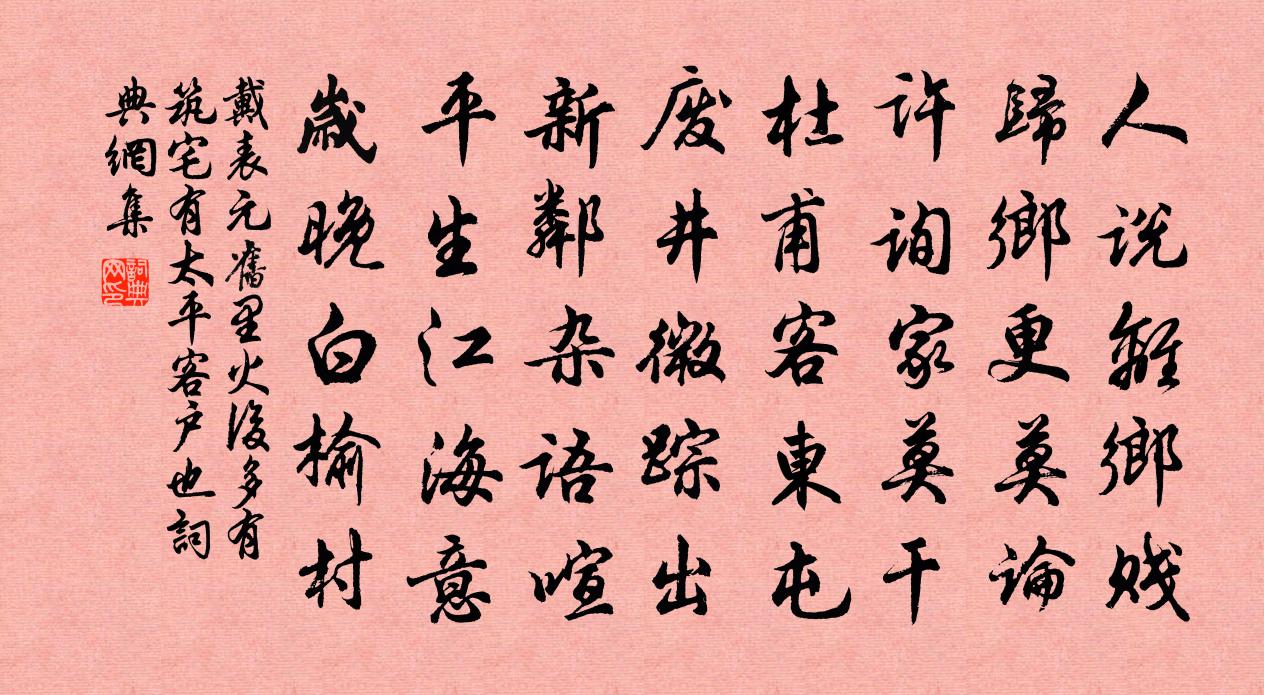 人說離鄉賤
歸鄉更莫論
許詢家莫干
杜甫客東屯
废井微踪出
新鄰杂語喧
平生江海意
歲晚白榆村
戴表元舊里火後多有
筑宅有太平客户也詞
典網集
詞典網印